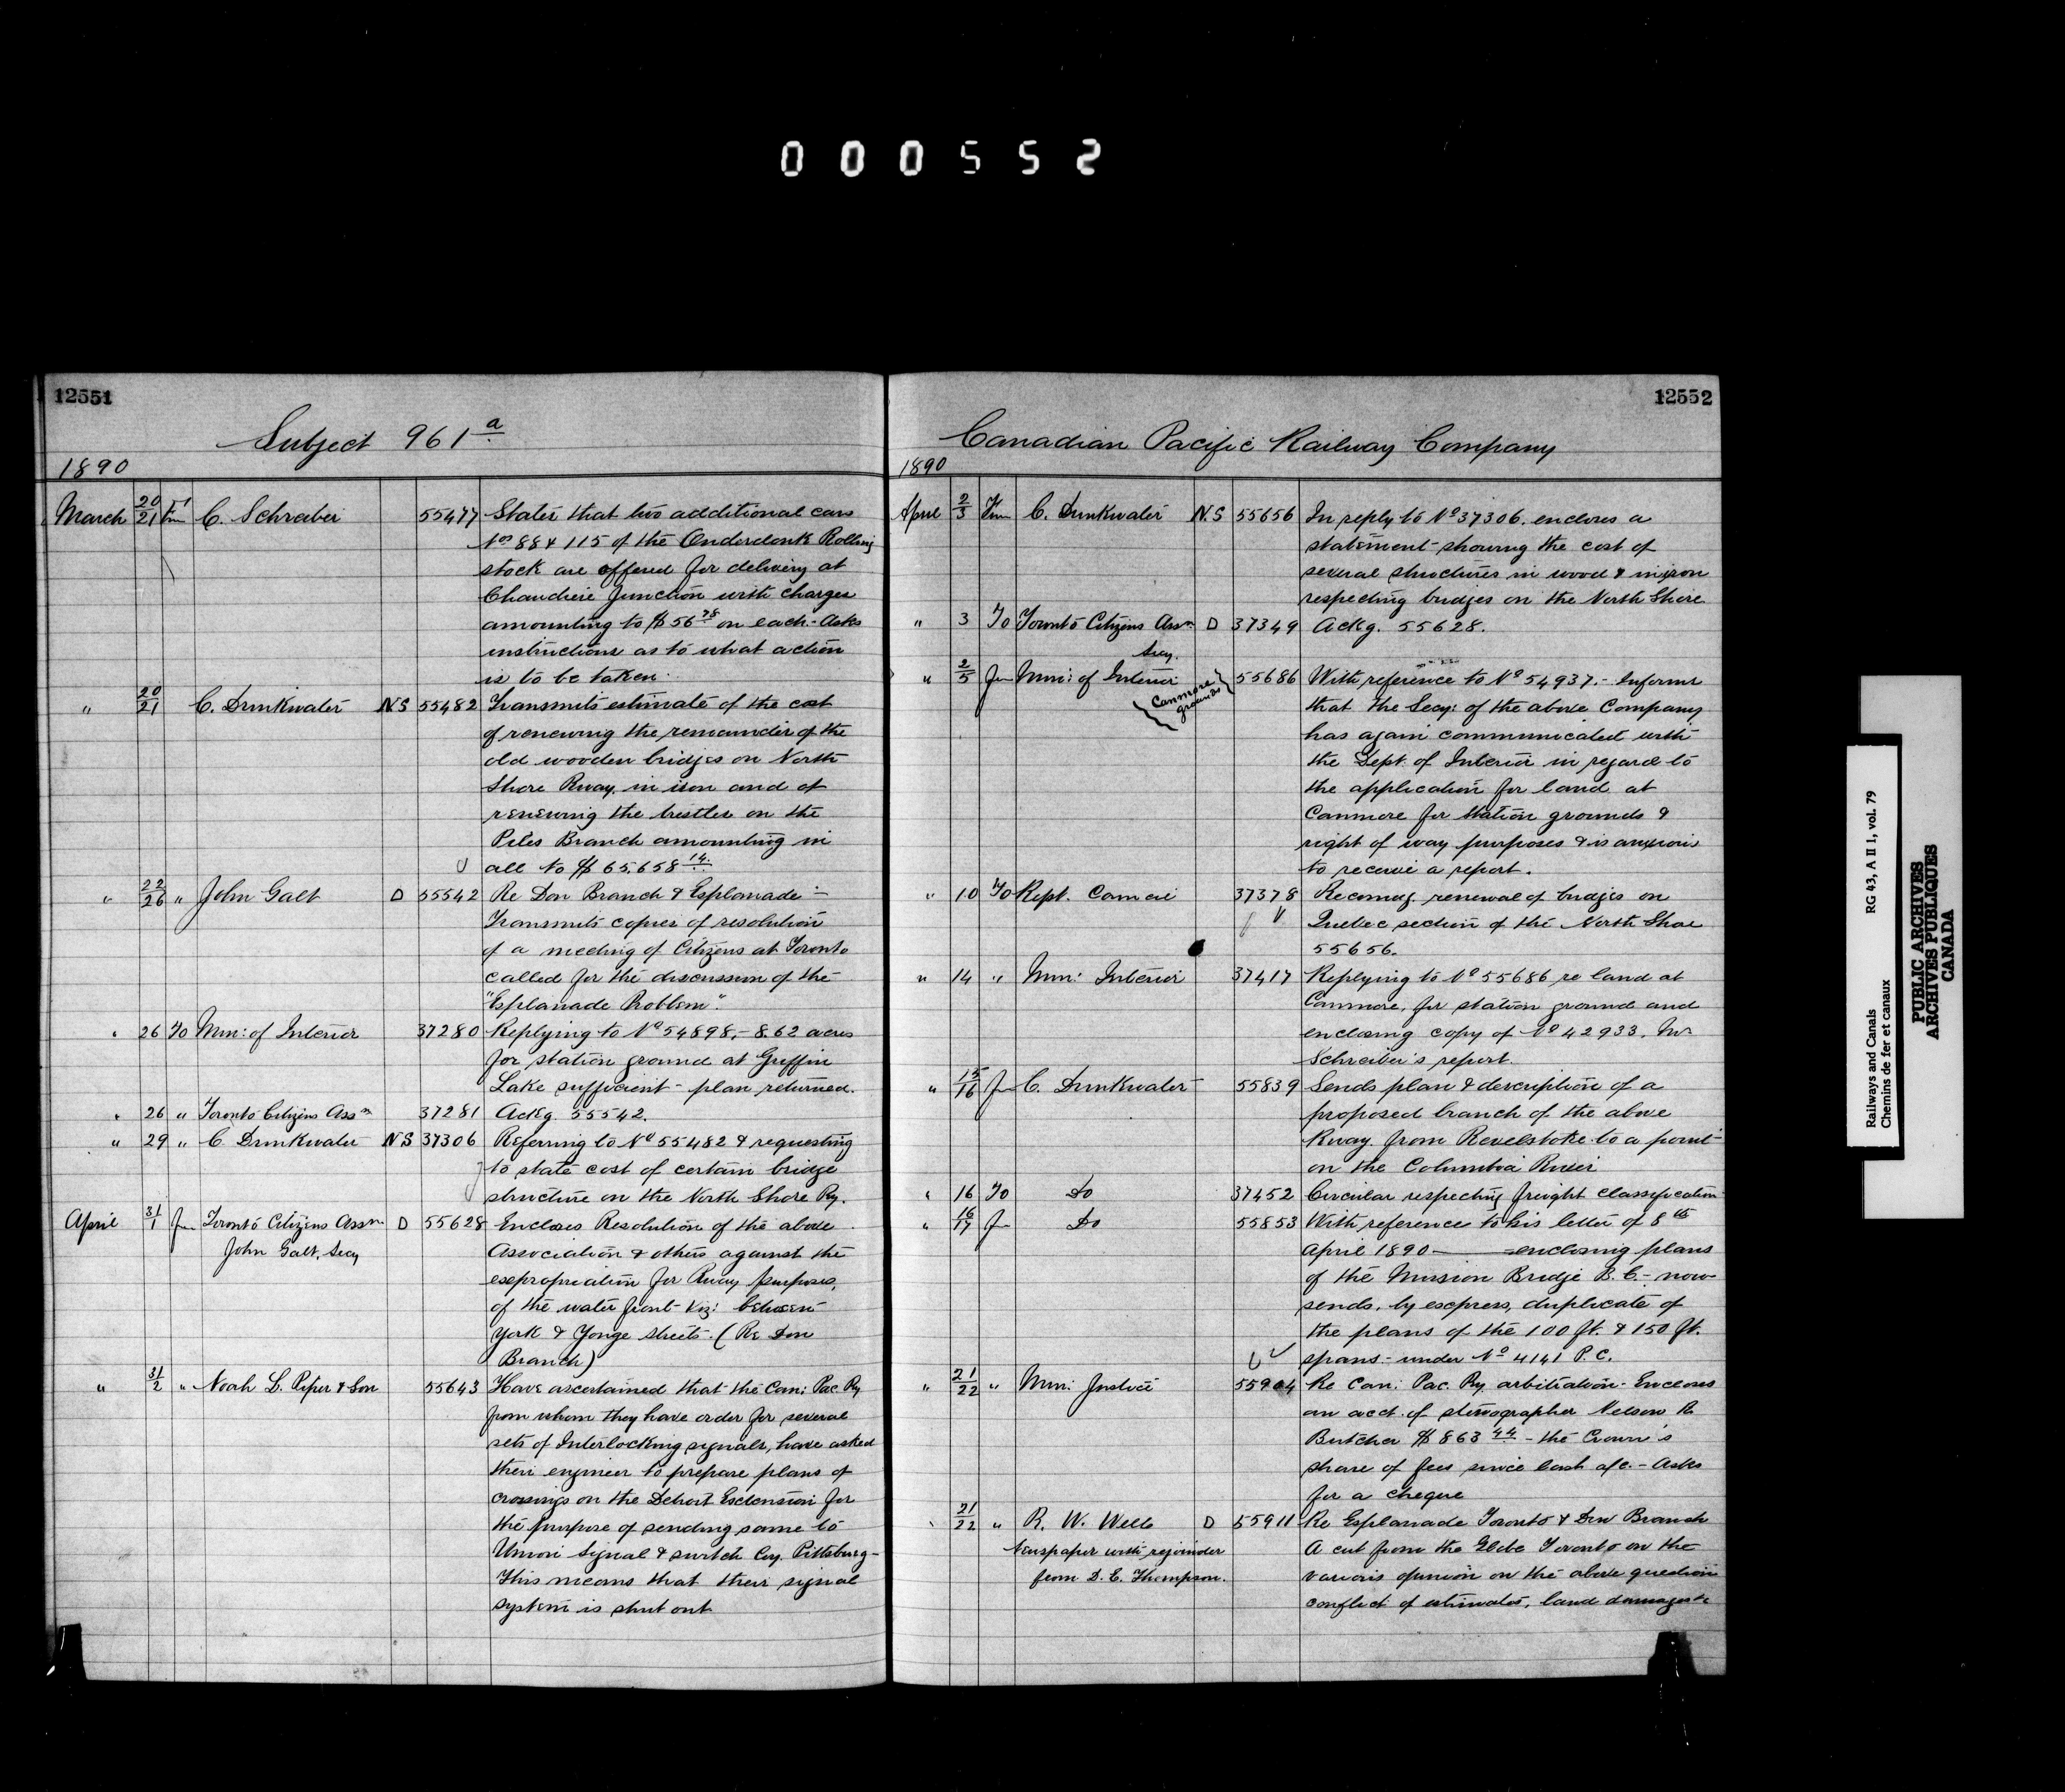 000552
12551
Subject 961 a
1890
March 20/21 Fm C. Schreiber 55477 States that two additional cars
Nos 88 & 115 of the Onderdonk Rolling
stock are offered for delivery at
Chaudiere Junction with charges
amounting to $56 78 on each - Asks
instructions as to what action
is to be taken.
" 20/21 C. Drinkwater N.S 55482 Transmits estimate of the cost
of renewing the remainder of the
old wooden bridges on North
Shore Rway. in iron and of
renewing the trestles on the
Piles Branch amounting in
all to $65,658 14.
" 22/26 " John Galt D 55542 Re Don Branch & Esplanade -
Transmits copies of resolution
of a meeting of Citizens at Toronto
called for the discussion of the
"Esplanade Problem".
" 26 To Min: of Interior 37280 Replying to No 54898. - 8.62 acres
for station ground at Griffin
Lake sufficient - plan returned.
" 26 " Toronto Citizens Assn 37281 Ackg. 55542.
" 29 " C. Drinkwater N S 37306 Referring to No 55482 & requesting
to state cost of certain bridge
structure on the North Shore Ry.
April 31/1 Fm Toronto Citizens Assn D 55628 Encloses Resolution of the above
John Galt, Secy Association & others against the
expropriation for Rway purposes,
of the water front - viz: between
York & Yonge streets. (Re Don
Branch)
" 31/2 " Noah L. Piper & Son 55643 Have ascertained that the Can: Pac. Ry
from whom they have order for several
sets of Interlocking signals, have asked
their engineer to prepare plans of
crossings on the Detroit Extension for
the purpose of sending same to
Union Signal & switch Coy. Pittsburg -
This means that their signal
system is shut out
12552
Canadian Pacific Railway Company
1890
April 2/3 Fm C. Drinkwater N.S 55656 In reply to No 37306. encloses a
statement - showing the cost of
several structures in wood & in iron
respecting bridges on the North Shore
" 3 To Toronto Citizens Assn D 37349 Ackg. 55628.
Secy.
" 2/5 Fm Min: of Interior {Canmore grounds} 55686 With reference to No 54937. - Informs
that the Secy: of the above Company
has again communicated with
the Dept. of Interior in regard to
the application for land at
Canmore for station grounds &
right of way purposes & is anxious
to receive a report.
" 10 To Rept. Council 37378 Recomg. renewal of bridges on
Quebec section of the North Shore
55656.
" 14 " Min: Interior 37417 Replying to No 55686 re land at
Canmore, for station ground and
enclosing copy of No 42933. Mr
Schreiber's report.
" 15/16 Fm C. Drinkwater 55839 Sends plan & description of a
proposed branch of the above
Rway. from Revelstoke to a point
on the Columbia River
" 16 To Do 37452 Circular respecting freight classification
" 16/17 Fm Do 55853 With reference to his letter of 8th
April 1890 - enclosing plans
of the Mission Bridge B.C. - now
sends, by express, duplicate of
the plans of the 100 ft. & 150 ft.
spans. - under No 4141 P.C.
" 21/22 " Min: Justice 55904 Re Can: Pac. Ry arbitration - Encloses
an acct. of stenographer Nelson R.
Butcher $863 44 - the Crown's
share of fees since last a/c. - Asks
for a cheque
" 21/22 " R. W. Wells D 55911 Re Esplanade Toronto & Don Branch
Newspaper with rejoinder A cut from the Globe Toronto on the
from D. E. Thompson. various opinion on the above question
conflict of estimates, land damages &c
Railways and Canals RG 43, A II 1, vol. 79
Chemins de fer et canaux
PUBLIC ARCHIVES
ARCHIVES PUBLIQUES
CANADA